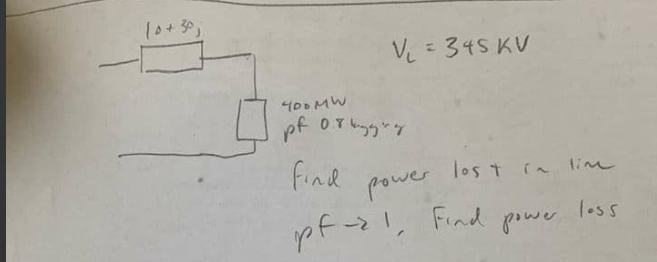 10 + 30j
V_L = 345 KV
400 MW
pf 0.8 lagging
Find power lost in line
pf → 1, Find power loss